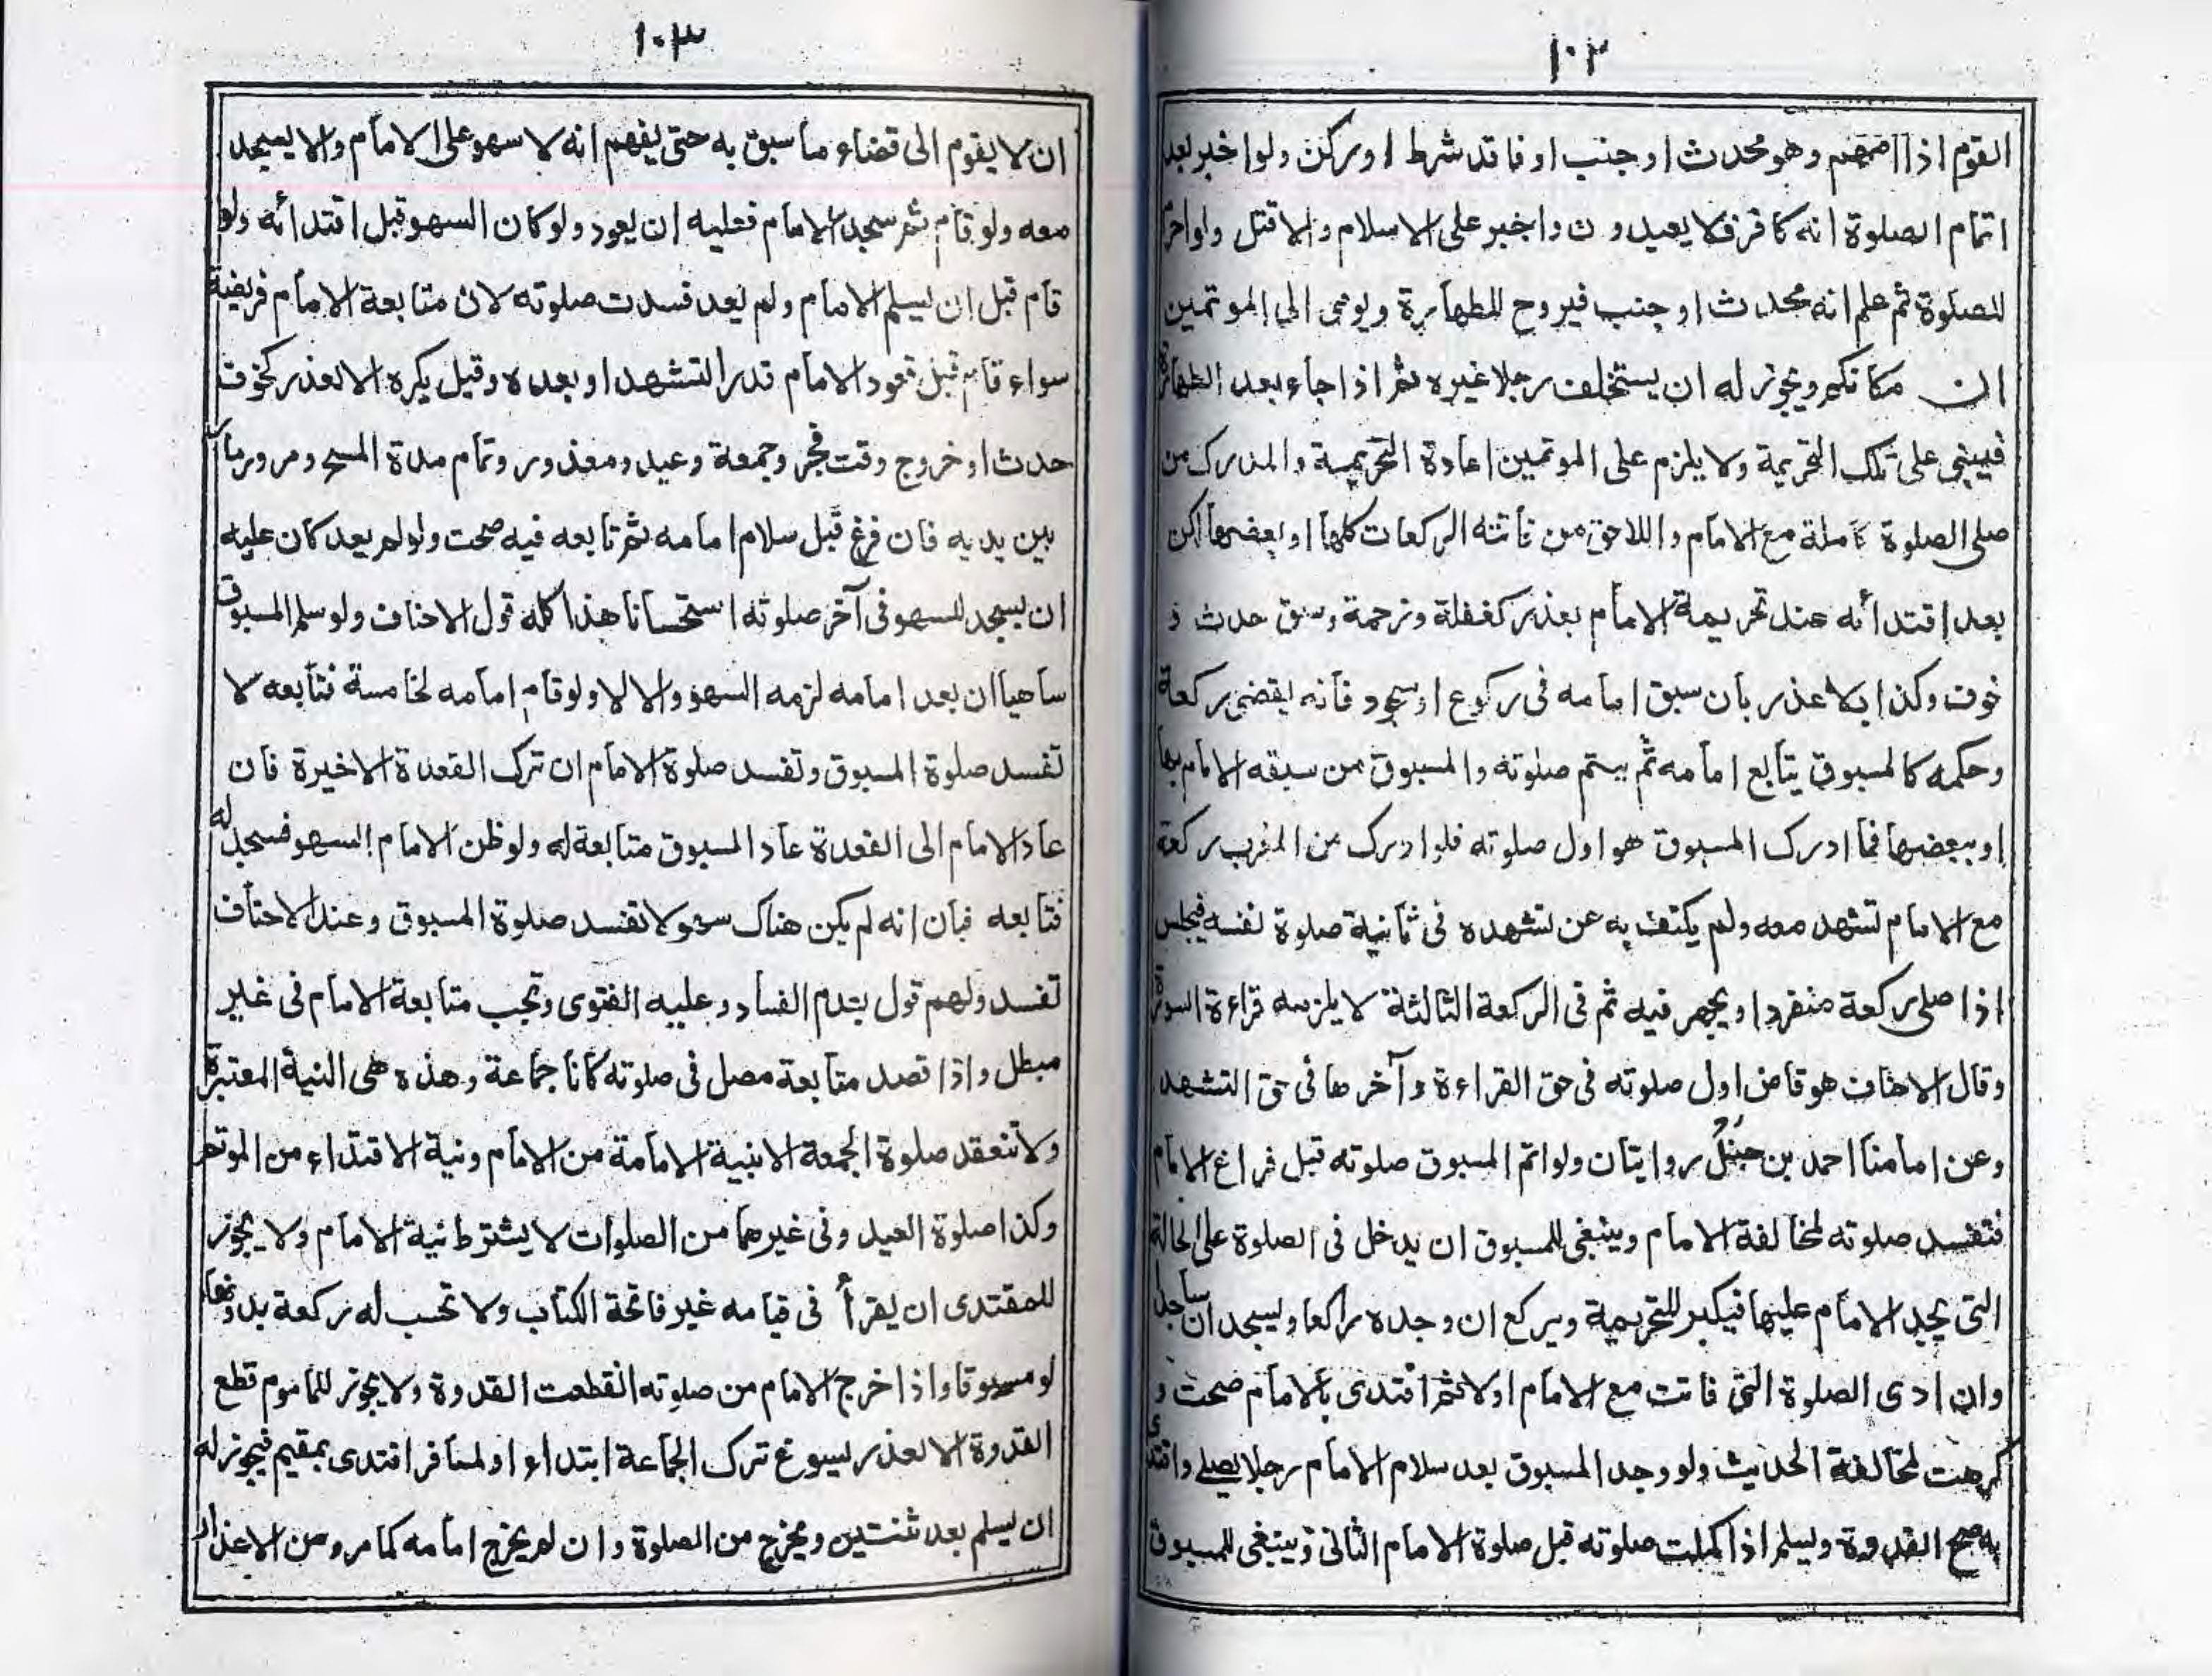 ١٠٢
القوم اذا امّهم وهو محدث او جنب او فاقد شرط او ركن ولو اخبر بعد
اتمام الصلوة انه كافر فلا يعيدون واجبر على الاسلام والا قتل ولو احرم
للصلوة ثم علم انه محدث او جنب فيروح للطهارة ويومى الى الموتمين
ان مكانكم ويجوز له ان يستخلف رجلا غيره ثم اذا جاء بعد الطهارة
فيبنى على تلك التحريمة ولا يلزم على الموتمين اعادة التحريمة والمدرك من
صلى الصلوة كاملة مع الامام واللاحق من فاتته الركعات كلها او بعضها لكن
بعد اقتدائه عند تحريمة الامام بعذر كغفلة وزحمة وسبق حدث و
خوف وكذا بلا عذر بان سبق امامه فى ركوع او سجود فانه يقضى ركعة
وحكمه كالمسبوق يتابع امامه ثم يتم صلوته والمسبوق من سبقه الامام بها
او ببعضها فما ادرك المسبوق هو اول صلوته فلو ادرك من المغرب ركعة
مع الامام تشهد معه ولم يكتف به عن تشهده فى ثانية صلوة نفسه فيجلس
اذا صلى ركعة منفردا ويجهر فيه ثم فى الركعة الثالثة لا يلزمه قراءة السورة
وقال الاحناف هو قاض اول صلوته فى حق القراءة وآخرها فى حق التشهد
وعن امامنا احمد بن حنبل روايتان ولو اتم المسبوق صلوته قبل فراغ الامام
فتفسد صلوته لمخالفة الامام وينبغى للمسبوق ان يدخل فى الصلوة على الحالة
التى يجد الامام عليها فيكبر للتحريمة ويركع ان وجده راكعا وليسجد ان ساجدا
وان ادى الصلوة التى فاتت مع الامام اولا ثم اقتدى بالامام صحت و
كرهت لمخالفة الحديث ولو وجد المسبوق بعد سلام الامام رجلا يصلى واقتدى
به صح القدوة وليسلم اذا كملت صلوته قبل صلوة الامام الثانى وينبغى للمسبوق
١٠٣
ان لا يقوم الى قضاء ما سبق به حتى يفهم انه لا سهو على الامام والا يسجد
معه ولو قام ثم سجد الامام فعليه ان يعود ولو كان السهو قبل اقتدائه ولو
قام قبل ان يسلم الامام ولم يعد فسدت صلوته لان متابعة الامام فريضة
سواء قام قبل قعود الامام قدر التشهد او بعده وقيل يكره الا لعذر كخوف
حدث او خروج وقت فجر وجمعة وعيد ومعذور وتمام مدة المسح ومرور مار
بين يديه فان فرغ قبل سلام امامه ثم تابعه فيه صحت ولو لم يعد كان عليه
ان يسجد للسهو فى آخر صلوته استحسانا هذا كله قول الاحناف ولو سلم المسبوق
ساهيا ان بعد امامه لزمه السهو والا لا ولو قام امامه لخامسة فتابعه لا
تفسد صلوة المسبوق وتفسد صلوة الامام ان ترك القعدة الاخيرة فان
عاد الامام الى القعدة عاد المسبوق متابعة له ولو ظن الامام السهو فسجد له
فتابعه فبان انه لم يكن هناك سهو لا تفسد صلوة المسبوق وعند الاحناف
تفسد ولهم قول بعدم الفساد وعليه الفتوى وتجب متابعة الامام فى غير
مبطل واذا قصد متابعة مصل فى صلوته كانا جماعة وهذه هى النية المعتبرة
ولا تنعقد صلوة الجمعة الا بنية الامامة من الامام ونية الاقتداء من الموتم
وكذا صلوة العيد وفى غيرهما من الصلوات لا يشترط نية الامام ولا يجوز
للمقتدى ان يقرأ فى قيامه غير فاتحة الكتاب ولا تحسب له ركعة بدونها
لو مسبوقا واذا خرج الامام من صلوته انقطعت القدوة ولا يجوز للماموم قطع
القدوة الا لعذر يسوغ ترك الجماعة ابتداء او لمسافر اقتدى بمقيم فيجوز له
ان يسلم بعد ثنتين ويخرج من الصلوة وان لم يخرج امامه كما مر ومن الاعذار